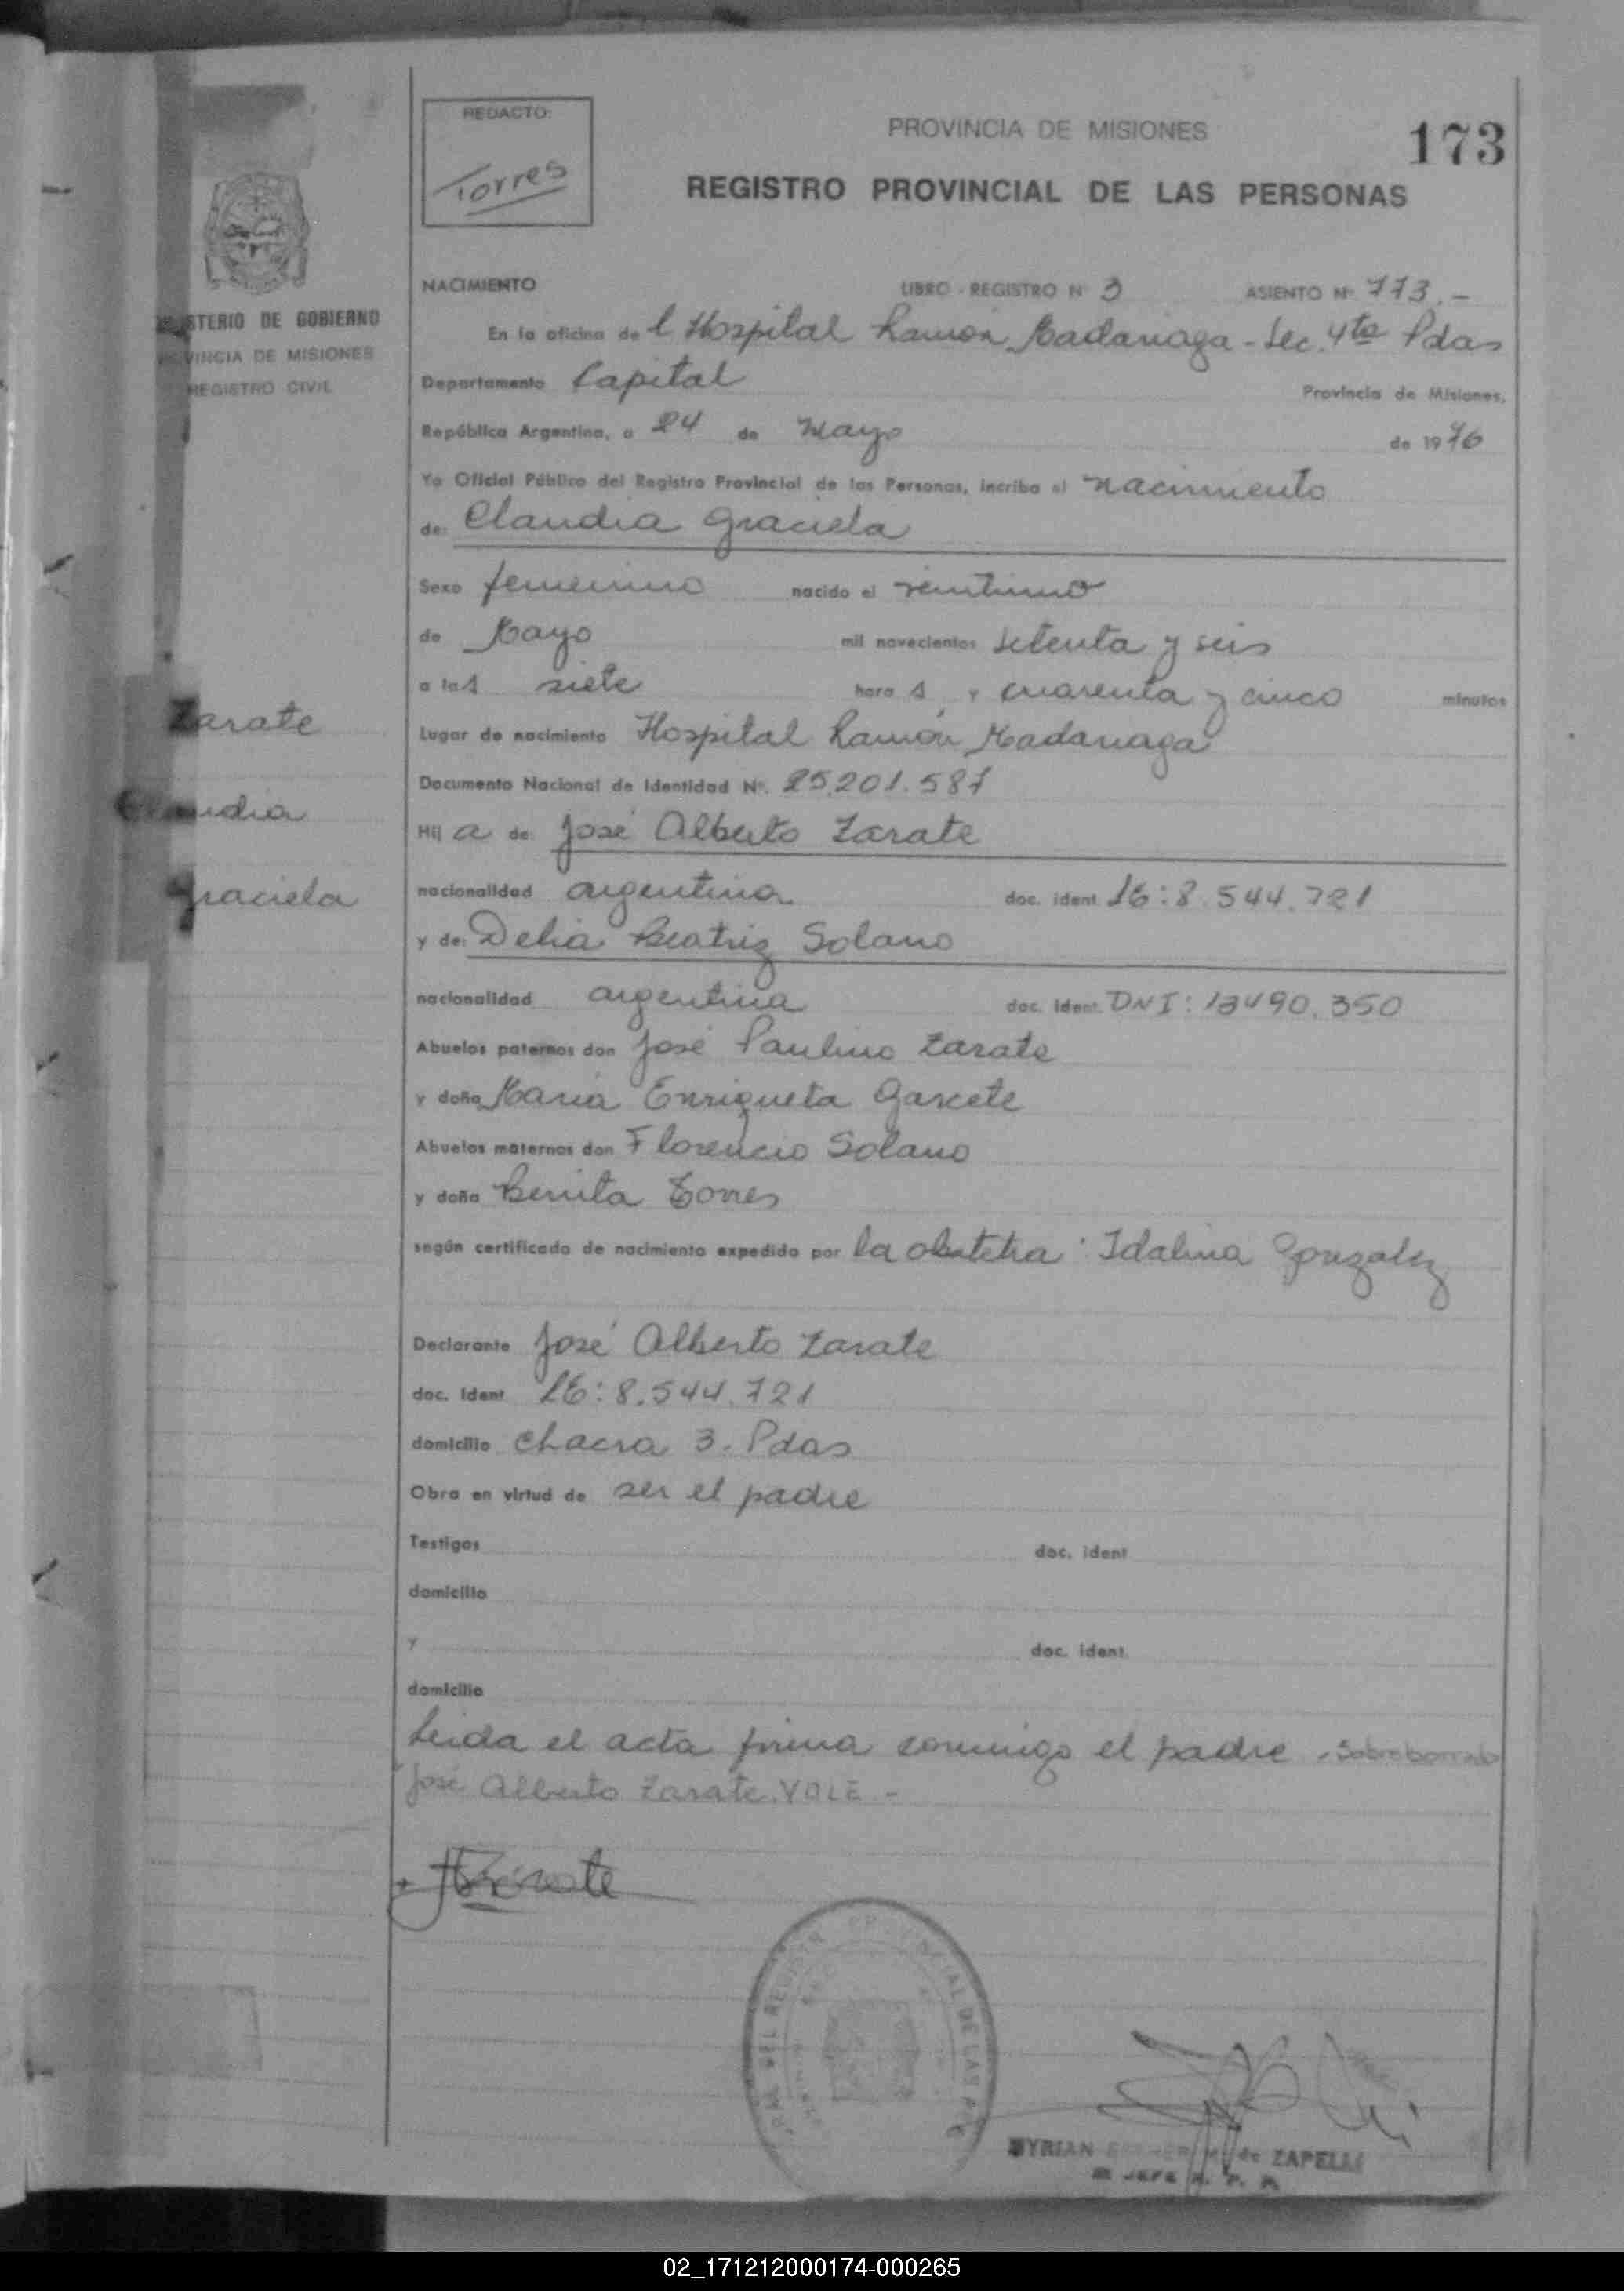 REDACTO:
Torres
PROVINCIA DE MISIONES
173
REGISTRO PROVINCIAL DE LAS PERSONAS
STERIO DE GOBIERNO
VINCIA DE MISIONES
REGISTRO CIVIL
NACIMIENTO LIBRO - REGISTRO Nº 3 ASIENTO Nº 173.-
En la oficina de l Hospital Ramón Madariaga - Sec. 4ta Pdas
Departamento Capital Provincia de Misiones,
República Argentina, a 24 de Mayo de 1976
Yo Oficial Público del Registro Provincial de las Personas, incribo el nacimiento
de: Claudia Graciela
Sexo femenino nacido el veintiuno
de Mayo mil novecientos setenta y seis
a las siete hora s y cuarenta y cinco minutos
Lugar de nacimiento Hospital Ramón Madariaga
Documento Nacional de Identidad Nº. 25.201.587
Hij a de: José Alberto Zarate
nacionalidad argentina doc. ident. LE: 8.544.721
y de: Delia Beatriz Solano
nacionalidad argentina doc. ident. DNI: 13490.350
Abuelos paternos don José Paulino Zarate
y doña Maria Enriqueta Garcete
Abuelos maternos don Florencio Solano
y doña Benita Torres
según certificado de nacimiento expedido por la obstetra: Idalina Gonzalez
Declarante José Alberto Zarate
doc. Ident. LE: 8.544.721
domicilio Chacra 3. Pdas
Obra en virtud de ser el padre
Testigos doc. ident.
domicilio
y doc. ident.
domicilio
Leida el acta firma conmigo el padre. Sobreborrado
"José Alberto Zarate. VALE -
Zarate
Claudia
Graciela
JAZárate
MYRIAN de ZAPELLI
JEFE R. P. P.
02_171212000174-000265